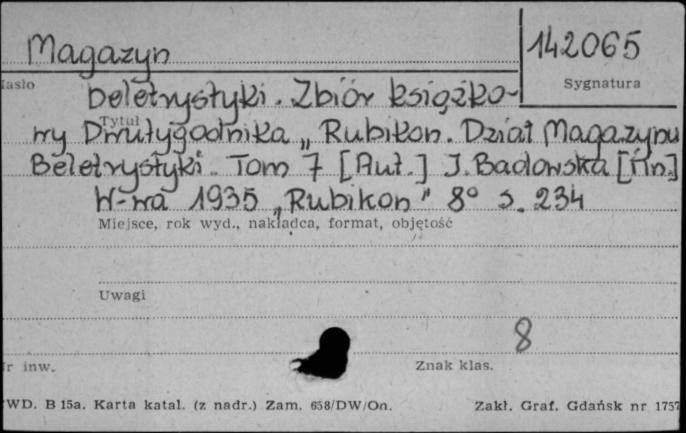 Magazyn
142065
Hasło
Sygnatura
beletrystyki. Zbiór książko-
Tytuł
wy Dwutygodnika „Rubikon. Dział Magazynu
Beletrystyki. Tom 7 [Aut.] J. Badowska [i in.]
W-wa 1935 „Rubikon" 8° s. 234
Miejsce, rok wyd., nakładca, format, objętość
Uwagi
8
r inw.
Znak klas.
WD. B 15a. Karta katal. (z nadr.) Zam. 658/DW/On.
Zakł. Graf. Gdańsk nr 1757